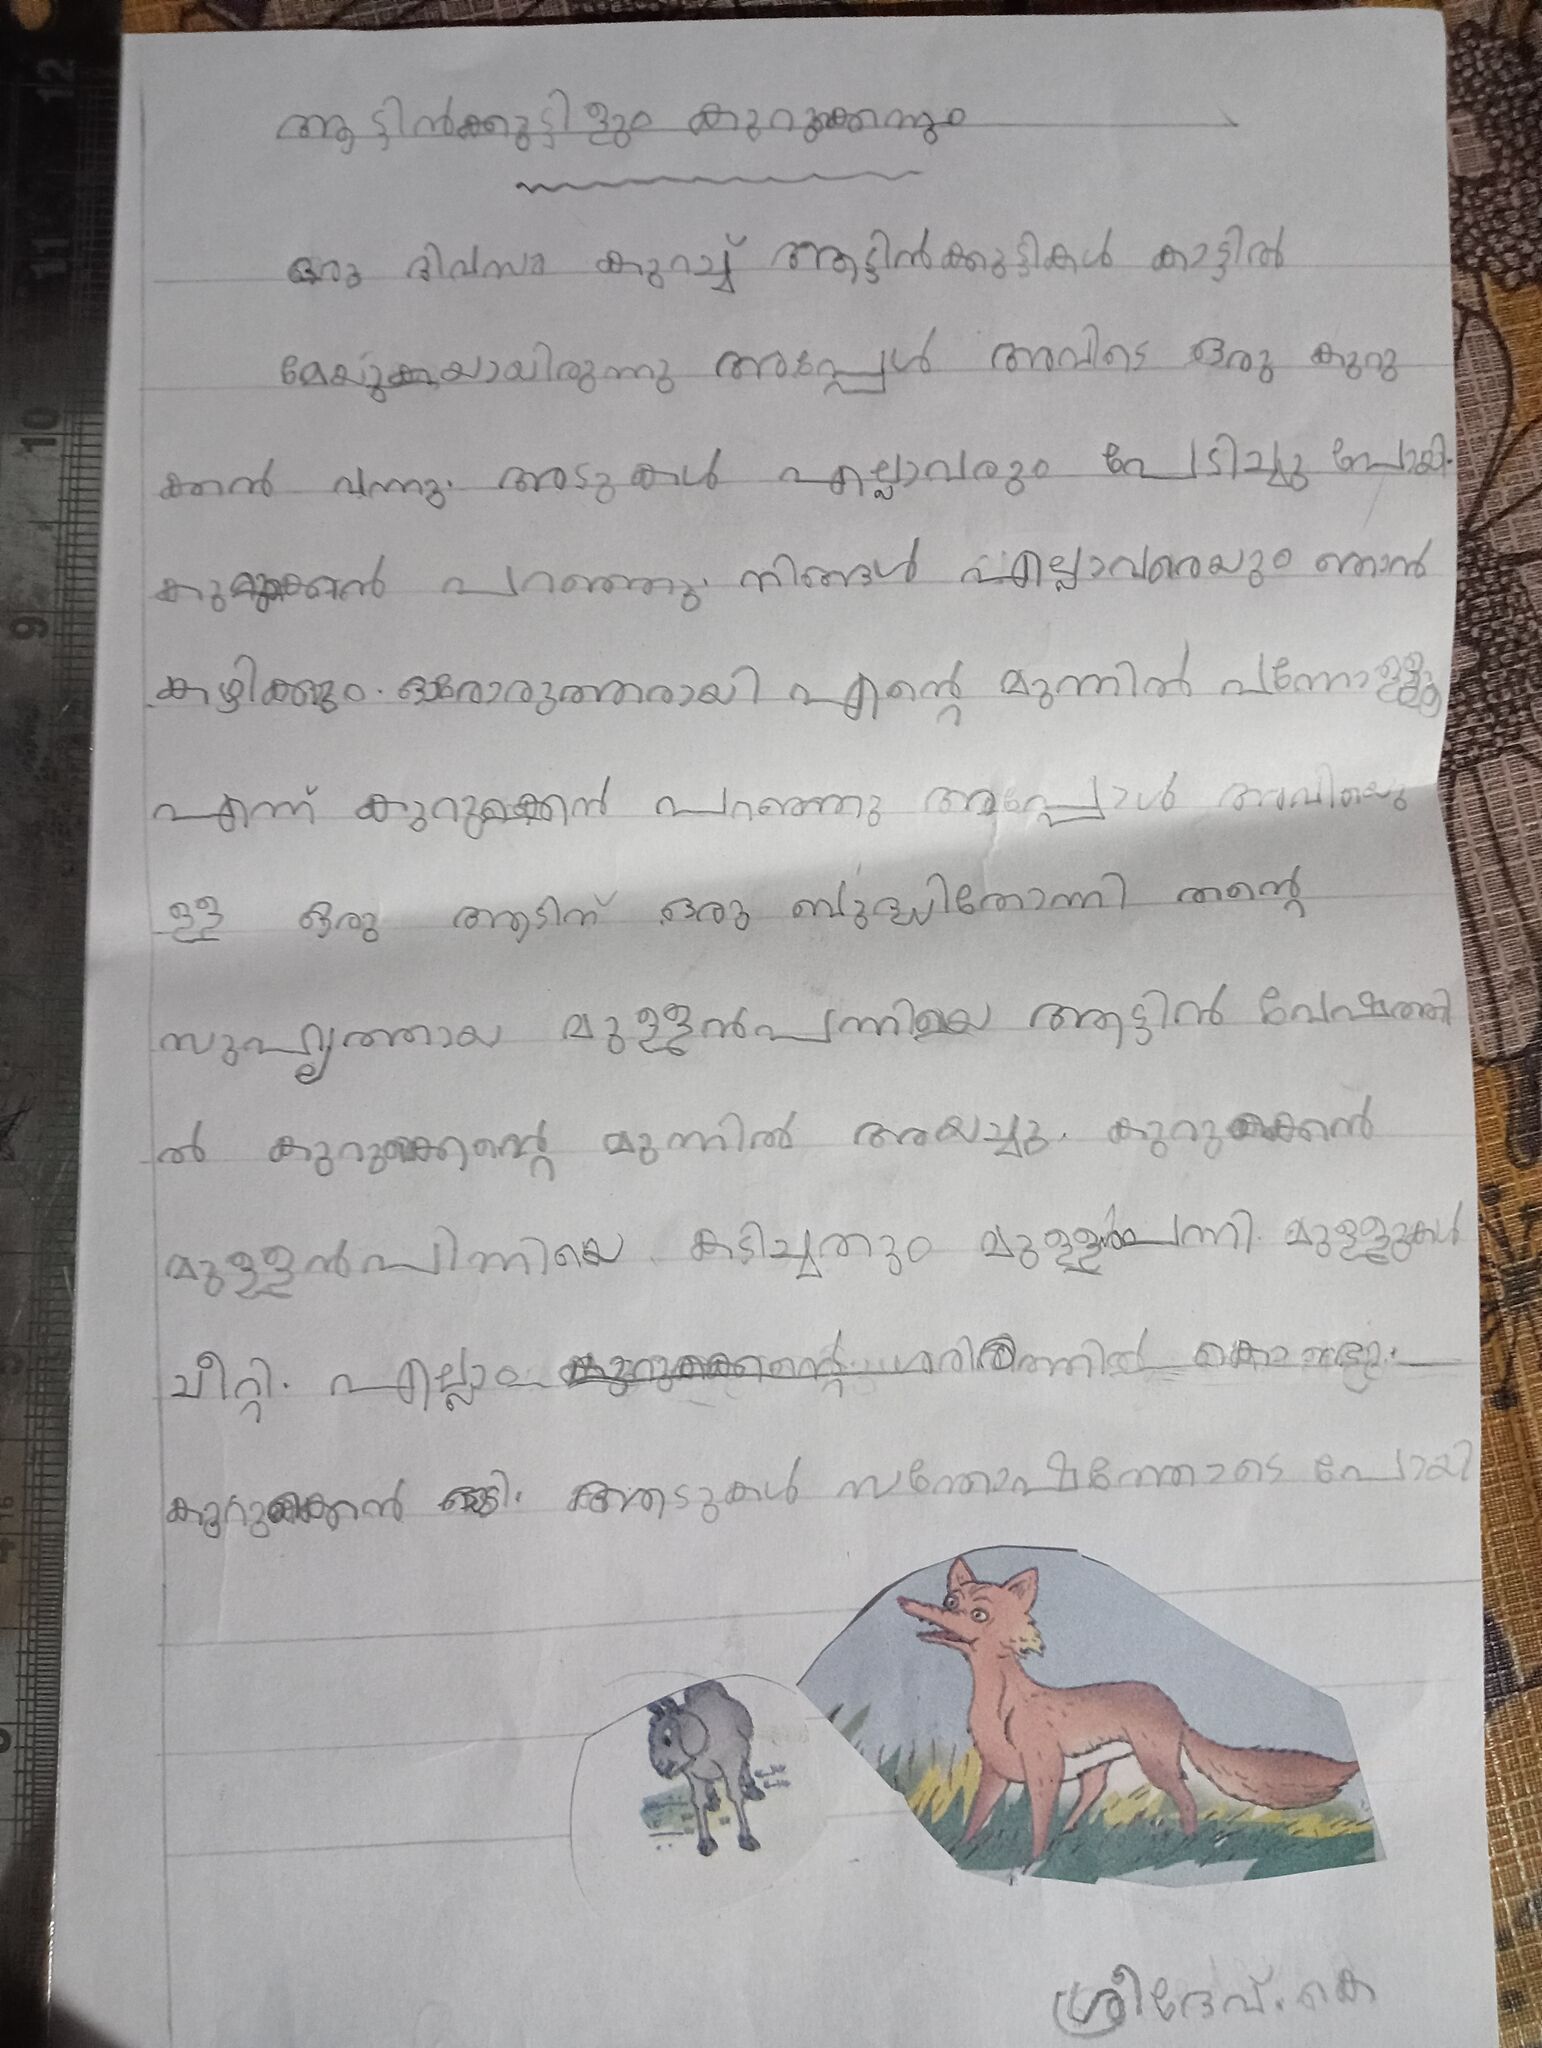 ആട്ടിൻക്കുട്ടിളും കുറുക്കനും
ഒരു ദിവസം കുറച്ച് ആട്ടിൻക്കുട്ടികൾ കാട്ടിൽ
മേയുകയായിരുന്നു അപ്പേൾ അവിടെ ഒരു കുറു
ക്കൻ വന്നു. അടുകൾ എല്ലാവരും പേടിച്ചു പോയി.
കുറുക്കൻ പറഞ്ഞു. നിങ്ങൾ എല്ലാവരെയും ഞാൻ
കഴിക്കും. ഓരോരുത്തരായി എന്റെ മുന്നിൽ വന്നോളൂ
എന്ന് കുറുക്കൻ പറഞ്ഞു അപ്പോൾ അവിടെയു
ള്ള ഒരു ആടിന് ഒരു ബുദ്ധിതോന്നി തന്റെ
സുഹൃത്തായ മുള്ളൻപന്നിയെ ആട്ടിൻ വേഷത്തി
ൽ കുറുക്കന്റെ മുന്നിൽ അയച്ചു. കുറുക്കൻ
മുള്ളൻപിന്നിയെ കടിച്ചതും മുള്ളൻപന്നി മുള്ളുകൾ
ചീറ്റി. എല്ലാം കുറുക്കന്റെ ശരിരത്തിൽ കൊണ്ടു.
കുറുക്കൻ ഓടി. ആടുകൾ സന്തോഷത്തോടെ പോയി
ശ്രീദേവ്. കെ